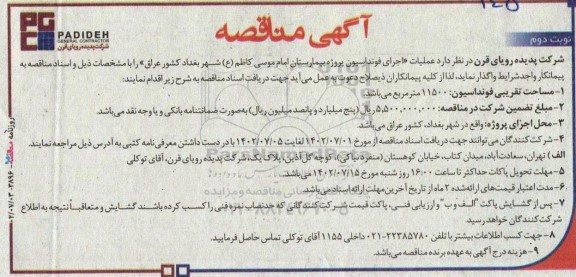 ۱۲۵
PGC
PADIDEH
GENERAL CONTRACTOR
شرکت پدیده رویای قرن
آگهی مناقصه
نوبت دوم
شرکت پدیده رویای قرن در نظر دارد عملیات «اجرای فونداسیون پروژه بیمارستان امام موسی کاظم (ع) شهر بغداد کشور عراق» را با مشخصات ذیل و اسناد مناقصه به
پیمانکار واجد شرایط واگذار نماید. لذا از کلیه پیمانکاران ذیصلاح دعوت به عمل می آید جهت دریافت اسناد مناقصه به شرح زیر اقدام نمایند:
۱- مساحت تقریبی فونداسیون: ۱۱۵۰۰ مترمربع می باشد.
۲- مبلغ تضمین شرکت در مناقصه: ۵,۵۰۰,۰۰۰,۰۰۰ ریال (پنج میلیارد و پانصد میلیون ریال) به صورت ضمانتنامه بانکی و یا وجه نقد می باشد.
۳- محل اجرای پروژه: واقع در شهر بغداد، کشور عراق می باشد.
۴- شرکت کنندگان می توانند جهت دریافت اسناد مناقصه از مورخ ۱۴۰۲/۰۷/۰۱ لغایت ۱۴۰۲/۰۷/۰۵ با در دست داشتن معرفی نامه کتبی به آدرس ذیل مراجعه نمایند.
الف) تهران، سعادت آباد، میدان کتاب، خیابان کوهستان (صفره نیاکی)، کوچه گل آذین، پلاک یک، شرکت پدیده رویای قرن، آقای توکلی
۵- مهلت تحویل پاکات حداکثر تا ساعت ۱۶:۰۰ روز شنبه مورخ ۱۴۰۲/۰۷/۱۵ می باشد.
۶- مدت اعتبار قیمت های ارائه شده ۲ ماه از تاریخ آخرین مهلت ارائه اسناد می باشد.
۷- پس از گشایش پاکت "الف و ب" و ارزیابی فنی، پاکت قیمت شرکت کنندگانی که حد نصاب نمره فنی را کسب کرده باشند گشایش و متعاقباً نتیجه به اطلاع
شرکت کنندگان خواهد رسید
۸- جهت کسب اطلاعات بیشتر با تلفن ۲۲۳۸۵۷۸۰-۰۲۱ داخلی ۱۱۵۵ آقای توکلی تماس حاصل فرمایید.
۹- هزینه درج آگهی به عهده برنده مناقصه می باشد.